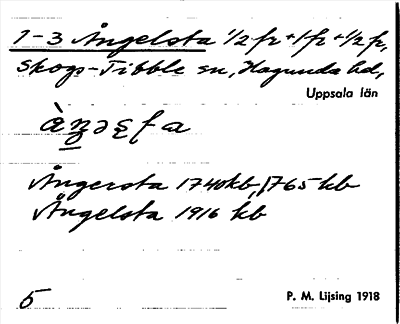 1-3 Ängelsta 1/2 fr + 1 fr + 1/2 fr,
Skogs-Tibble sn, Hagunda hd,
Uppsala län
Ängersta 1740 kb, 1765 kb
Ängelsta 1916 kb
5
P. M. Lijsing 1918